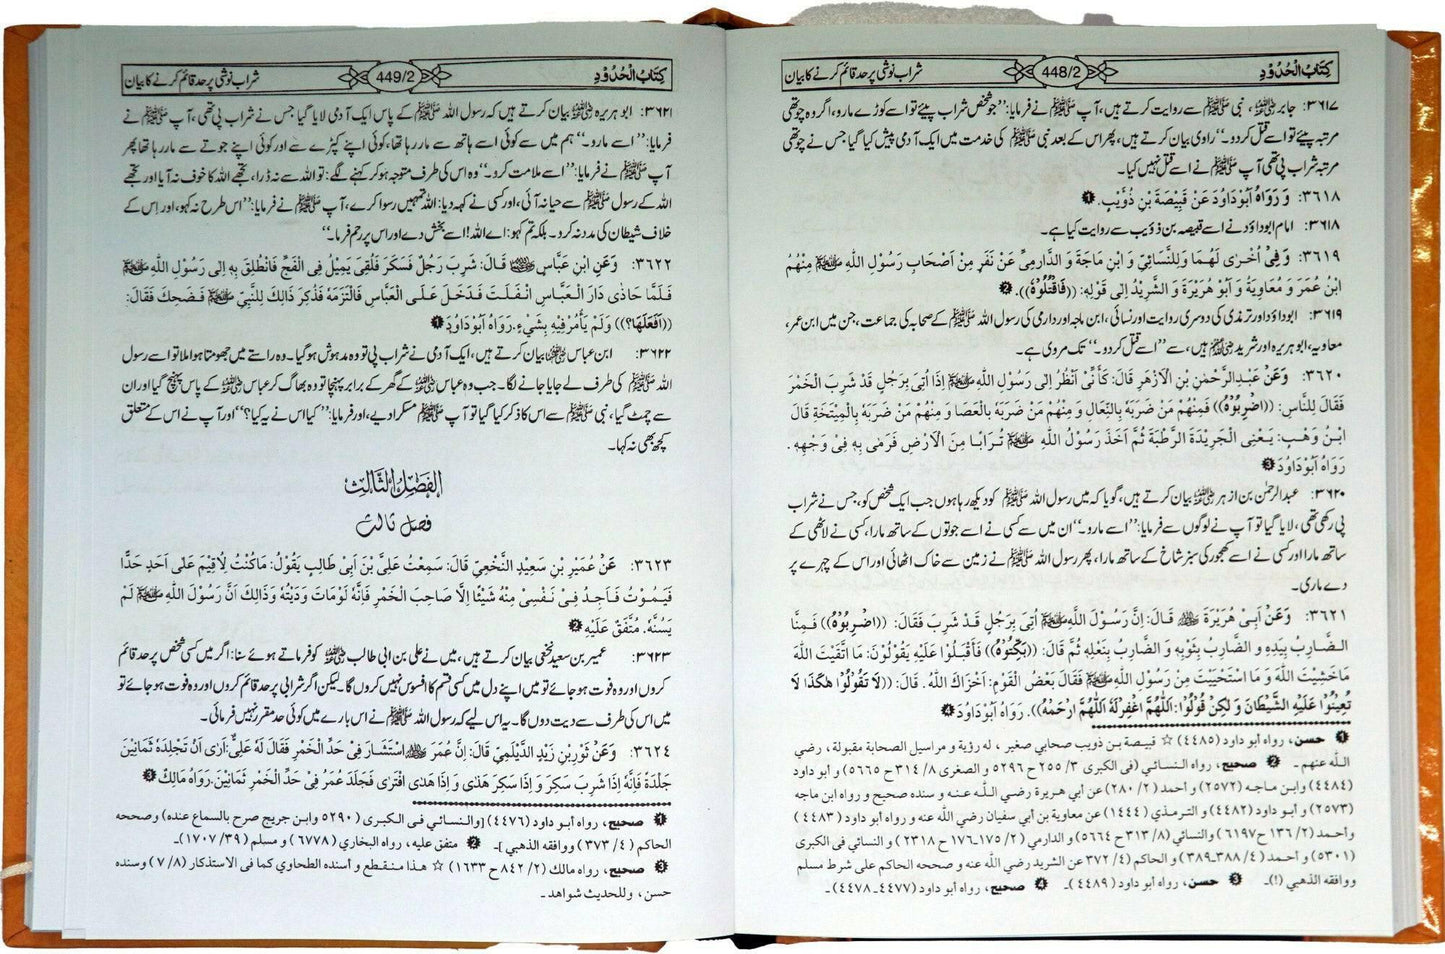 كِتَابُ الْحُدُوْدِ
448/2
شراب نوشی پر حد قائم کرنے کا بیان
۳۶۱۷: جابر رضی اللہ عنہ ، نبی ﷺ سے روایت کرتے ہیں، آپ ﷺ نے فرمایا: ”جو شخص شراب پیئے تو اسے کوڑے مارو، اگر وہ چوتھی
مرتبہ پیئے تو اسے قتل کر دو۔“ راوی بیان کرتے ہیں، پھر اس کے بعد نبی ﷺ کی خدمت میں ایک آدمی پیش کیا گیا جس نے چوتھی
مرتبہ شراب پی تھی آپ ﷺ نے اسے قتل نہیں کیا۔
۳۶۱۸: وَ رَوَاهُ اَبُوْدَاوُدَ عَنْ قَبِيْصَةَ بْنِ ذُؤَيْبٍ. ❶
۳۶۱۸: امام ابوداؤد نے اسے قبیصہ بن ذؤیب سے روایت کیا ہے۔
۳۶۱۹: وَ فِيْ اُخْرٰى لَهُمَا وَلِلنَّسَائِيِّ وَ ابْنِ مَاجَةَ وَ الدَّارِمِيِّ عَنْ نَفَرٍ مِنْ اَصْحَابِ رَسُوْلِ اللّٰهِ ﷺ مِنْهُمْ
ابْنُ عُمَرَ وَ مُعَاوِيَةُ وَ اَبُوْ هُرَيْرَةَ وَ الشَّرِيْدُ اِلٰى قَوْلِهِ: ((فَاقْتُلُوْهُ)). ❷
۳۶۱۹: ابوداؤد اور ترمذی کی دوسری روایت اور نسائی، ابن ماجہ اور دارمی کی رسول اللہ ﷺ کے صحابہ کی جماعت، جن میں ابن عمر،
معاویہ، ابو ہریرہ اور شرید رضی اللہ عنہم ہیں، سے ”اسے قتل کر دو۔“ تک مروی ہے۔
۳۶۲۰: وَعَنْ عَبْدِالرَّحْمٰنِ بْنِ الْاَزْهَرِ قَالَ: كَاَنِّيْ اَنْظُرُ اِلٰى رَسُوْلِ اللّٰهِ ﷺ اِذَا اُتِيَ بِرَجُلٍ قَدْ شَرِبَ الْخَمْرَ
فَقَالَ لِلنَّاسِ: ((اضْرِبُوْهُ)) فَمِنْهُمْ مَنْ ضَرَبَهُ بِالنِّعَالِ وَ مِنْهُمْ مَنْ ضَرَبَهُ بِالْعَصَا وَ مِنْهُمْ مَنْ ضَرَبَهُ بِالْمِيْتَخَةِ قَالَ
ابْنُ وَهْبٍ: يَعْنِي الْجَرِيْدَةَ الرَّطْبَةَ ثُمَّ اَخَذَ رَسُوْلُ اللّٰهِ ﷺ تُرَابًا مِنَ الْاَرْضِ فَرَمٰى بِهِ فِيْ وَجْهِهِ.
رَوَاهُ اَبُوْدَاوُدَ ❸
۳۶۲۰: عبدالرحمٰن بن ازہر رضی اللہ عنہ بیان کرتے ہیں، گویا کہ میں رسول اللہ ﷺ کو دیکھ رہا ہوں جب ایک شخص کو، جس نے شراب
پی رکھی تھی، لایا گیا تو آپ نے لوگوں سے فرمایا: ”اسے مارو۔“ ان میں سے کسی نے اسے جوتوں کے ساتھ مارا، کسی نے لاٹھی کے
ساتھ مارا اور کسی نے اسے کھجور کی سبز شاخ کے ساتھ مارا، پھر رسول اللہ ﷺ نے زمین سے خاک اٹھائی اور اس کے چہرے پر
دے ماری۔
۳۶۲۱: وَعَنْ اَبِيْ هُرَيْرَةَ رضی اللہ عنہ قَالَ: اِنَّ رَسُوْلَ اللّٰهِ ﷺ اُتِيَ بِرَجُلٍ قَدْ شَرِبَ فَقَالَ: ((اضْرِبُوْهُ)) فَمِنَّا
الضَّارِبُ بِيَدِهِ وَ الضَّارِبُ بِثَوْبِهِ وَ الضَّارِبُ بِنَعْلِهِ ثُمَّ قَالَ: ((بَكِّتُوْهُ)) فَاَقْبَلُوْا عَلَيْهِ يَقُوْلُوْنَ: مَا اتَّقَيْتَ اللّٰهَ
مَاخَشِيْتَ اللّٰهَ وَ مَا اسْتَحْيَيْتَ مِنْ رَسُوْلِ اللّٰهِ ﷺ فَقَالَ بَعْضُ الْقَوْمِ: اَخْزَاكَ اللّٰهُ. قَالَ: ((لَا تَقُوْلُوْا هٰكَذَا لَا
تُعِيْنُوْا عَلَيْهِ الشَّيْطَانَ وَ لٰكِنْ قُوْلُوْا: اَللّٰهُمَّ اغْفِرْ لَهُ اَللّٰهُمَّ ارْحَمْهُ)). رَوَاهُ اَبُوْدَاوُدَ ❹
❶ حسن، رواه أبو داود (٤٤٨٥) ☆ قبيصة بن ذويب صحابي صغير ، له رؤية و مراسيل الصحابة مقبولة ، رضي
اللّٰه عنهم۔ ❷ صحيح، رواه النسائي (في الكبرى ٣/ ٢٥٥ ح ٥٢٩٦ و الصغرى ٨/ ٣١٤ ح ٥٦٦٥) و أبو داود
(٤٤٨٤) وابن ماجه (٢٥٧٢) و أحمد (٢/ ٢٨٠) عن أبي هريرة رضي اللّٰه عنه و سنده صحيح و رواه ابن ماجه
(٢٥٧٣) و أبو داود (٤٤٨٢) و الترمذي (١٤٤٤) عن معاوية بن أبي سفيان رضي اللّٰه عنه و رواه أبو داود (٤٤٨٣)
وأحمد (٢/ ١٣٦ ح ٦١٩٧) والنسائي (٨/ ٣١٣ ح ٥٦٦٤) و الدارمي (٢/ ١٧٥۔١٧٦ ح ٢٣١٨) و النسائي في الكبرى
(٥٣٠١) و أحمد (٤/ ٣٨٨۔٣٨٩) و الحاكم (٤/ ٣٧٢ عن الشريد رضي اللّٰه عنه و صححه الحاكم على شرط مسلم
ووافقه الذهبي (!)۔ ❸ حسن، رواه أبو داود (٤٤٨٩)۔ ❹ صحيح، رواه أبو داود (٤٤٧٧۔٤٤٧٨)۔
كِتَابُ الْحُدُوْدِ
449/2
شراب نوشی پر حد قائم کرنے کا بیان
۳۶۲۱: ابو ہریرہ رضی اللہ عنہ بیان کرتے ہیں کہ رسول اللہ ﷺ کے پاس ایک آدمی لایا گیا جس نے شراب پی تھی، آپ ﷺ نے
فرمایا: ”اسے مارو۔“ ہم میں سے کوئی اسے ہاتھ سے مار رہا تھا، کوئی اپنے کپڑے سے اور کوئی اپنے جوتے سے مار رہا تھا پھر
آپ ﷺ نے فرمایا: ”اسے ملامت کرو۔“ وہ اس کی طرف متوجہ ہو کر کہنے لگے: تو اللہ سے نہ ڈرا، تجھے اللہ کا خوف نہ آیا اور تجھے
اللہ کے رسول ﷺ سے حیا نہ آئی، اور کسی نے کہہ دیا: اللہ تمہیں رسوا کرے، آپ ﷺ نے فرمایا: ”اس طرح نہ کہو، اور اِس کے
خلاف شیطان کی مدد نہ کرو۔ بلکہ تم کہو: اے اللہ! اسے بخش دے اور اس پر رحم فرما۔“
۳۶۲۲: وَعَنِ ابْنِ عَبَّاسٍ رضی اللہ عنہما قَالَ: شَرِبَ رَجُلٌ فَسَكَرَ فَلُقِيَ يَمِيْلُ فِي الْفَجِّ فَانْطُلِقَ بِهِ اِلٰى رَسُوْلِ اللّٰهِ ﷺ
فَلَمَّا حَاذٰى دَارَ الْعَبَّاسِ انْفَلَتَ فَدَخَلَ عَلَى الْعَبَّاسِ فَالْتَزَمَهُ فَذُكِرَ ذَالِكَ لِلنَّبِيِّ ﷺ فَضَحِكَ فَقَالَ:
((اَفَعَلَهَا؟)) وَلَمْ يَاْمُرْ فِيْهِ بِشَيْءٍ. رَوَاهُ اَبُوْدَاوُدَ ❶
۳۶۲۲: ابن عباس رضی اللہ عنہما بیان کرتے ہیں، ایک آدمی نے شراب پی تو وہ مدہوش ہو گیا۔ وہ راستے میں جھومتا ہوا ملا تو اسے رسول
اللہ ﷺ کی طرف لے جایا جانے لگا۔ جب وہ عباس رضی اللہ عنہ کے گھر کے برابر پہنچا تو وہ بھاگ کر عباس رضی اللہ عنہ کے پاس پہنچ گیا اور ان
سے چمٹ گیا، نبی ﷺ سے اس کا ذکر کیا گیا تو آپ ﷺ مسکرا دیے، اور فرمایا: ”کیا اس نے یہ کیا؟“ اور آپ نے اس کے متعلق
کچھ بھی نہ کہا۔
الفَصْلُ الثَّالِثُ
فصل ثالث
۳۶۲۳: عَنْ عُمَيْرِ بْنِ سَعِيْدِ النَّخْعِيِّ قَالَ: سَمِعْتُ عَلِيَّ بْنَ اَبِيْ طَالِبٍ يَقُوْلُ: مَا كُنْتُ لِاُقِيْمَ عَلٰى اَحَدٍ حَدًّا
فَيَمُوْتُ فَاَجِدُ فِيْ نَفْسِيْ مِنْهُ شَيْئًا اِلَّا صَاحِبَ الْخَمْرِ فَاِنَّهُ لَوْمَاتَ وَدَيْتُهُ وَذَالِكَ اَنَّ رَسُوْلَ اللّٰهِ ﷺ لَمْ
يَسُنَّهُ. مُتَّفَقٌ عَلَيْهِ ❷
۳۶۲۳: عمیر بن سعید نخعی بیان کرتے ہیں، میں نے علی بن ابی طالب رضی اللہ عنہ کو فرماتے ہوئے سنا: اگر میں کسی شخص پر حد قائم
کروں اور وہ فوت ہو جائے تو میں اپنے دل میں کسی قسم کا افسوس نہیں کروں گا۔ لیکن اگر شرابی پر حد قائم کروں اور وہ فوت ہو جائے تو
میں اس کی طرف سے دیت دوں گا۔ یہ اس لیے کہ رسول اللہ ﷺ نے اس بارے میں کوئی حد مقرر نہیں فرمائی۔
۳۶۲۴: وَعَنْ ثَوْرِبْنِ زَيْدِ الدَّيْلَمِيِّ قَالَ: اِنَّ عُمَرَ رضی اللہ عنہ اسْتَشَارَ فِيْ حَدِّ الْخَمْرِ فَقَالَ لَهُ عَلِيٌّ: اَرٰى اَنْ تَجْلِدَهُ ثَمَانِيْنَ
جَلْدَةً فَاِنَّهُ اِذَا شَرِبَ سَكِرَ وَ اِذَا سَكِرَ هَذٰى وَ اِذَا هَذٰى افْتَرٰى فَجَلَدَ عُمَرُ فِيْ حَدِّ الْخَمْرِ ثَمَانِيْنَ. رَوَاهُ مَالِكٌ ❸
❶ صحيح، رواه أبو داود (٤٤٧٦) [والنسائي في الكبرى (٥٢٩٠ وابن جريج صرح بالسماع عنده) وصححه
الحاكم (٤/ ٣٧٣) ووافقه الذهبي]۔ ❷ متفق عليه، رواه البخاري (٦٧٧٨) و مسلم (٣٩/ ١٧٠٧)۔
❸ صحيح، رواه مالك (٢/ ٨٤٢ ح ١٦٣٣) ☆ هذا منقطع و أسنده الطحاوي كما في الاستذكار (٨/ ٧) وسنده
حسن، وللحديث شواهد۔